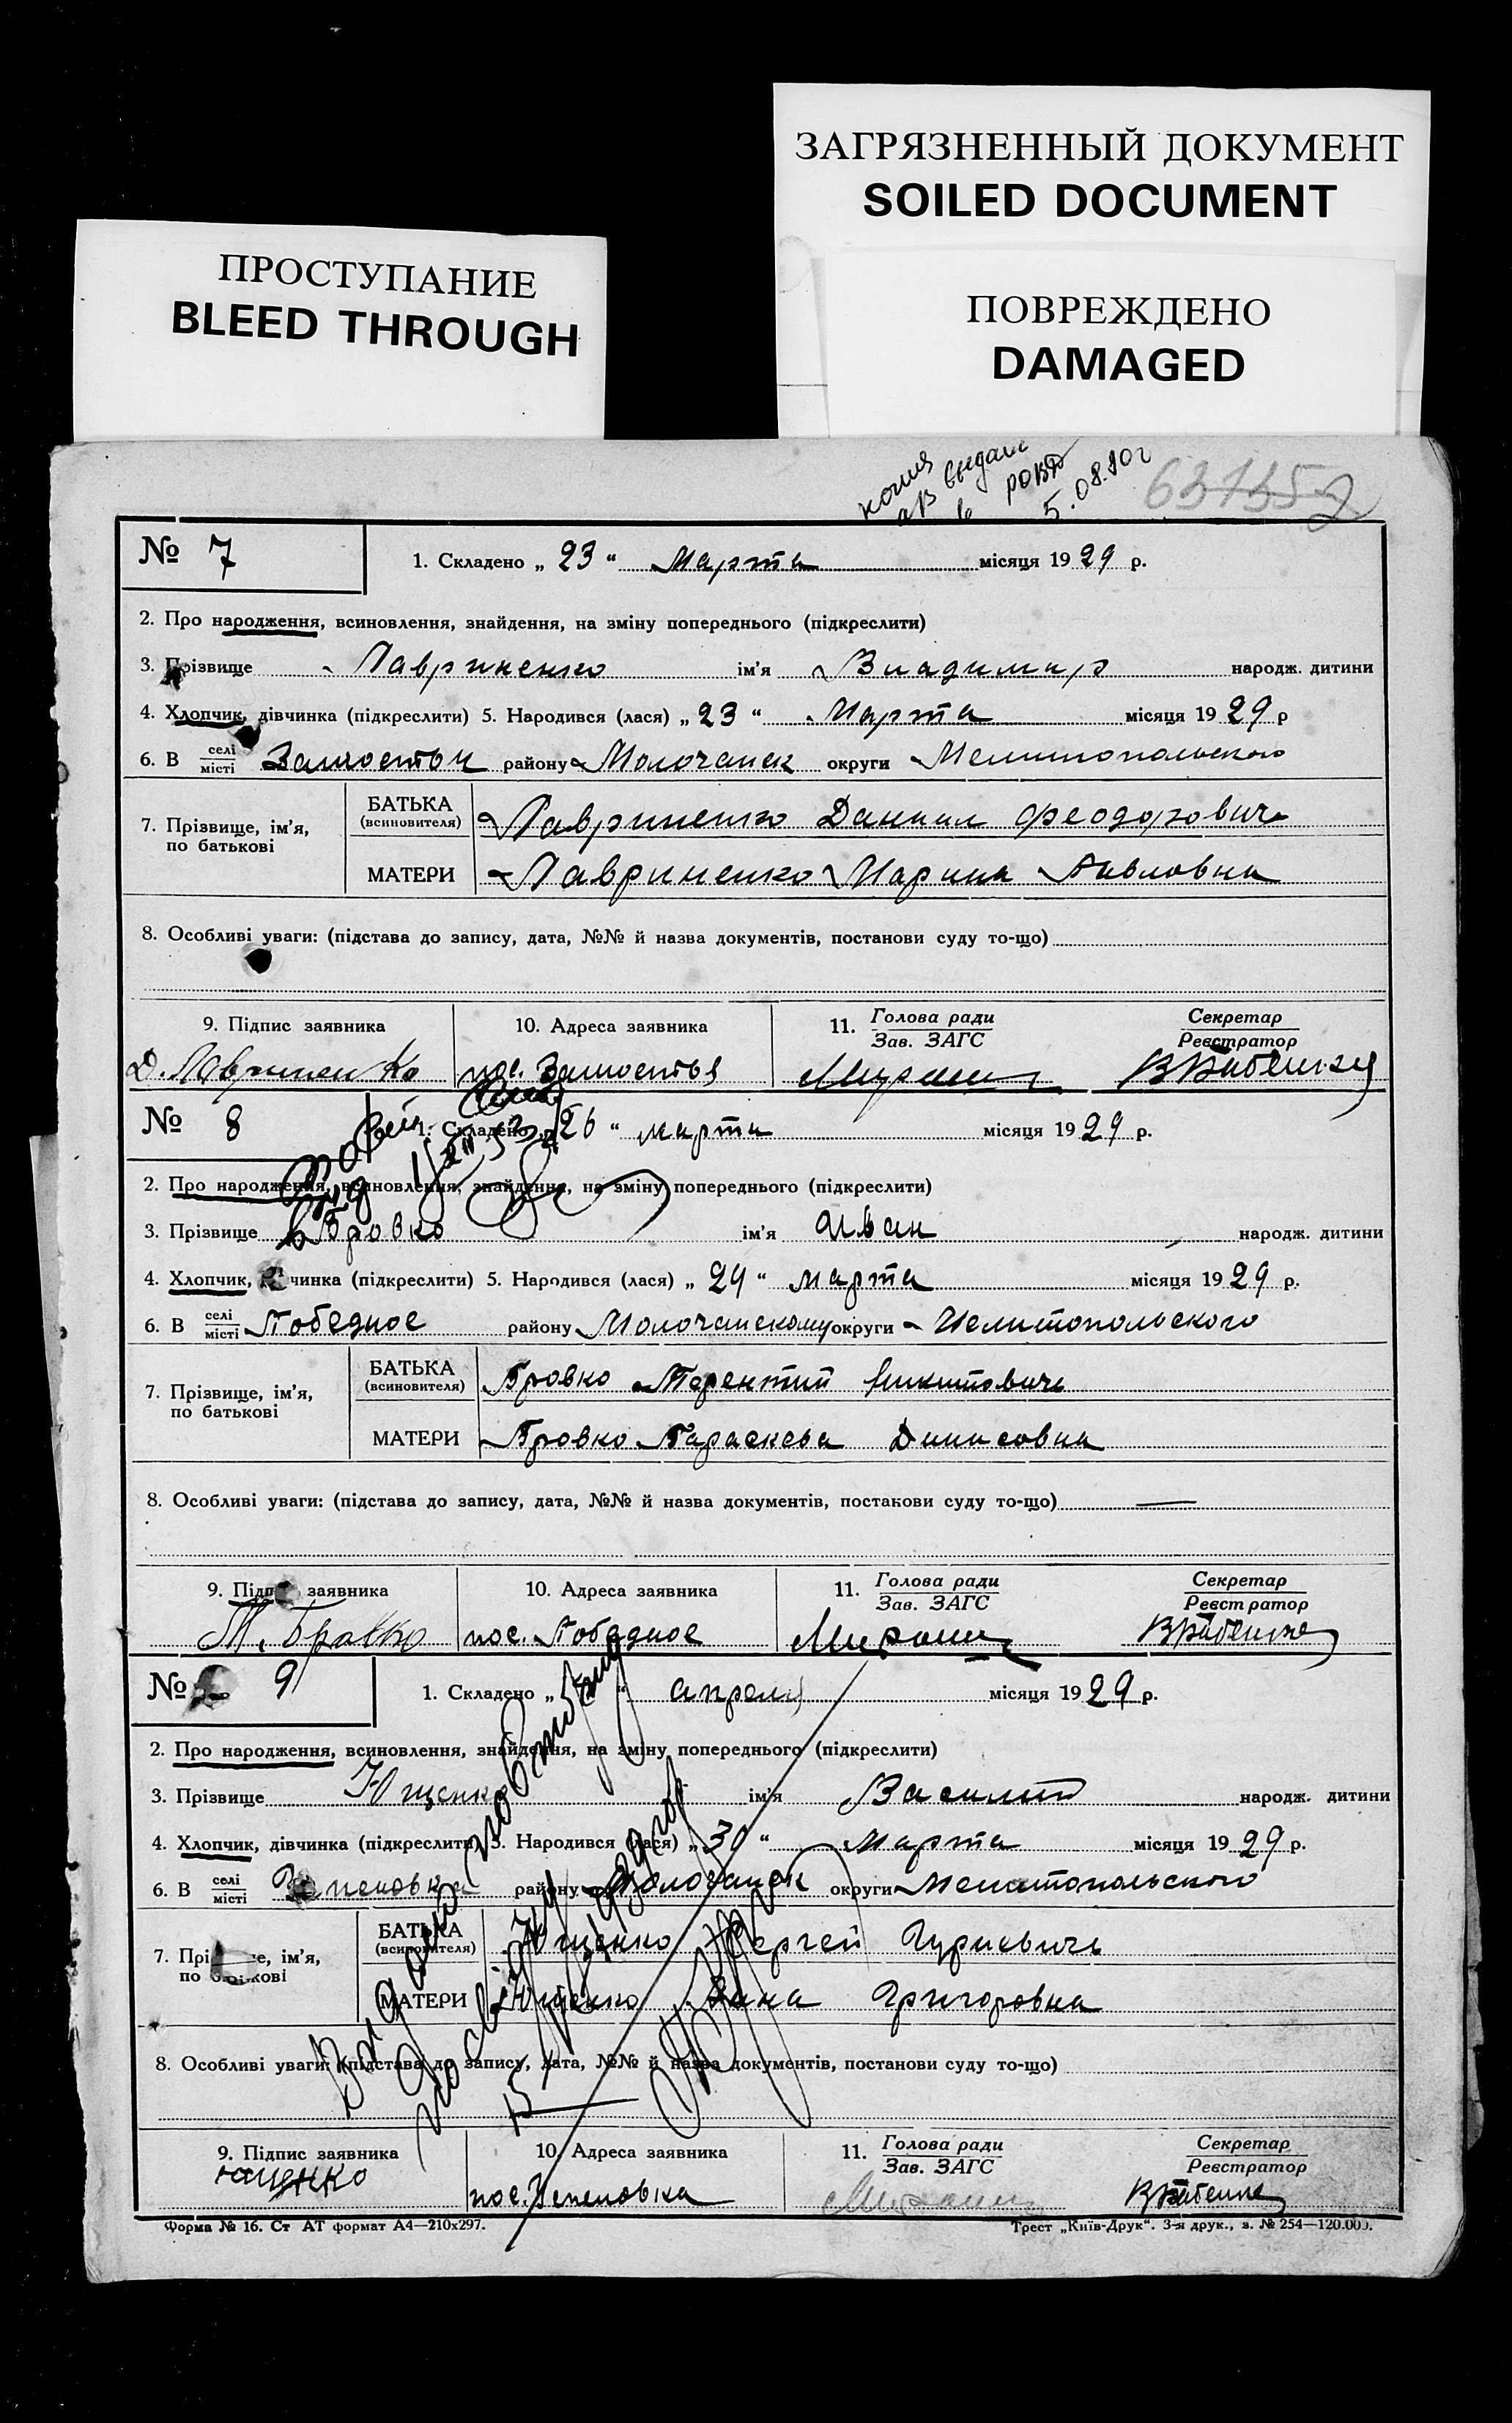 ЗАГРЯЗНЕННЫЙ ДОКУМЕНТ
SOILED DOCUMENT
ПРОСТУПАНИЕ
BLEED THROUGH
ПОВРЕЖДЕНО
DAMAGED
копия
ав выдан
в РОВД
5.08.80г
631352
№ 7
1. Складено „ 23 “ Марта місяця 1929 р.
2. Про народження, всиновлення, знайдення, на зміну попереднього (підкреслити)
3. Прізвище Лавриненко ім'я Владимир народж. дитини
4. Хлопчик, дівчинка (підкреслити) 5. Народився (лася) „ 23 “ Марта місяця 1929 р
6. В селі/місті Замостья району Молочанск округи Мелитопольского
7. Прізвище, ім'я, по батькові
БАТЬКА (всиновителя) Лавриненко Даниил Феодорович
МАТЕРИ Лавриненко Марина Павловна
8. Особливі уваги: (підстава до запису, дата, №№ й назва документів, постанови суду то-що)
9. Підпис заявника 10. Адреса заявника 11. Голова ради/Зав. ЗАГС Секретар/Реєстратор
Д. Лавриненко пос. Замостья
№ 8
1. Складено „ 26 “ марта місяця 1929 р.
2. Про народження, всиновлення, знайдення, на зміну попереднього (підкреслити)
3. Прізвище Бровко ім'я Иван народж. дитини
4. Хлопчик, дівчинка (підкреслити) 5. Народився (лася) „ 24 “ марта місяця 1929 р.
6. В селі/місті Победное району Молочанскому округи Мелитопольского
7. Прізвище, ім'я, по батькові
БАТЬКА (всиновителя) Бровко Терентий Никитович
МАТЕРИ Бровко Параскева Динисовна
8. Особливі уваги: (підстава до запису, дата, №№ й назва документів, постанови суду то-що) —
9. Підпис заявника 10. Адреса заявника 11. Голова ради/Зав. ЗАГС Секретар/Реєстратор
Т. Бровко пос. Победное
№ 9
1. Складено „ “ апреля місяця 1929 р.
2. Про народження, всиновлення, знайдення, на зміну попереднього (підкреслити)
3. Прізвище Ющенко ім'я Василий народж. дитини
4. Хлопчик, дівчинка (підкреслити) 5. Народився (лася) „ 30 “ Марта місяця 1929 р.
6. В селі/місті району Молочанск округи Мелитопольского
7. Прізвище, ім'я, по батькові
БАТЬКА (всиновителя) Ющенко Сергей Гуриевич
МАТЕРИ Ющенко Анна Григоровна
8. Особливі уваги: (підстава до запису, дата, №№ й назва документів, постанови суду то-що)
9. Підпис заявника 10. Адреса заявника 11. Голова ради/Зав. ЗАГС Секретар/Реєстратор
Ющенко пос.
Форма № 16. Ст АТ формат А4—210х297. Трест „Київ-Друк“. 3-я друк., з. № 254—120.000.